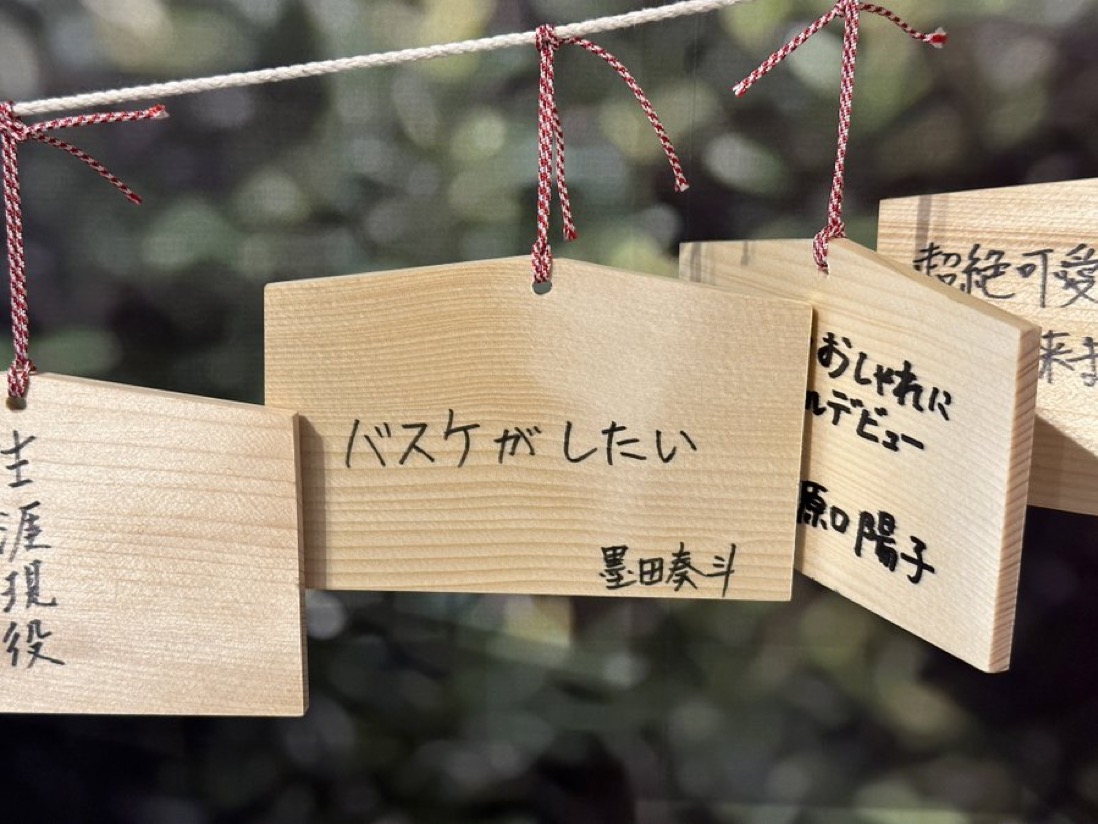 生涯現役
バスケがしたい
墨田奏斗
おしゃれに
ルデビュー
原口陽子
超絶可愛
来ま